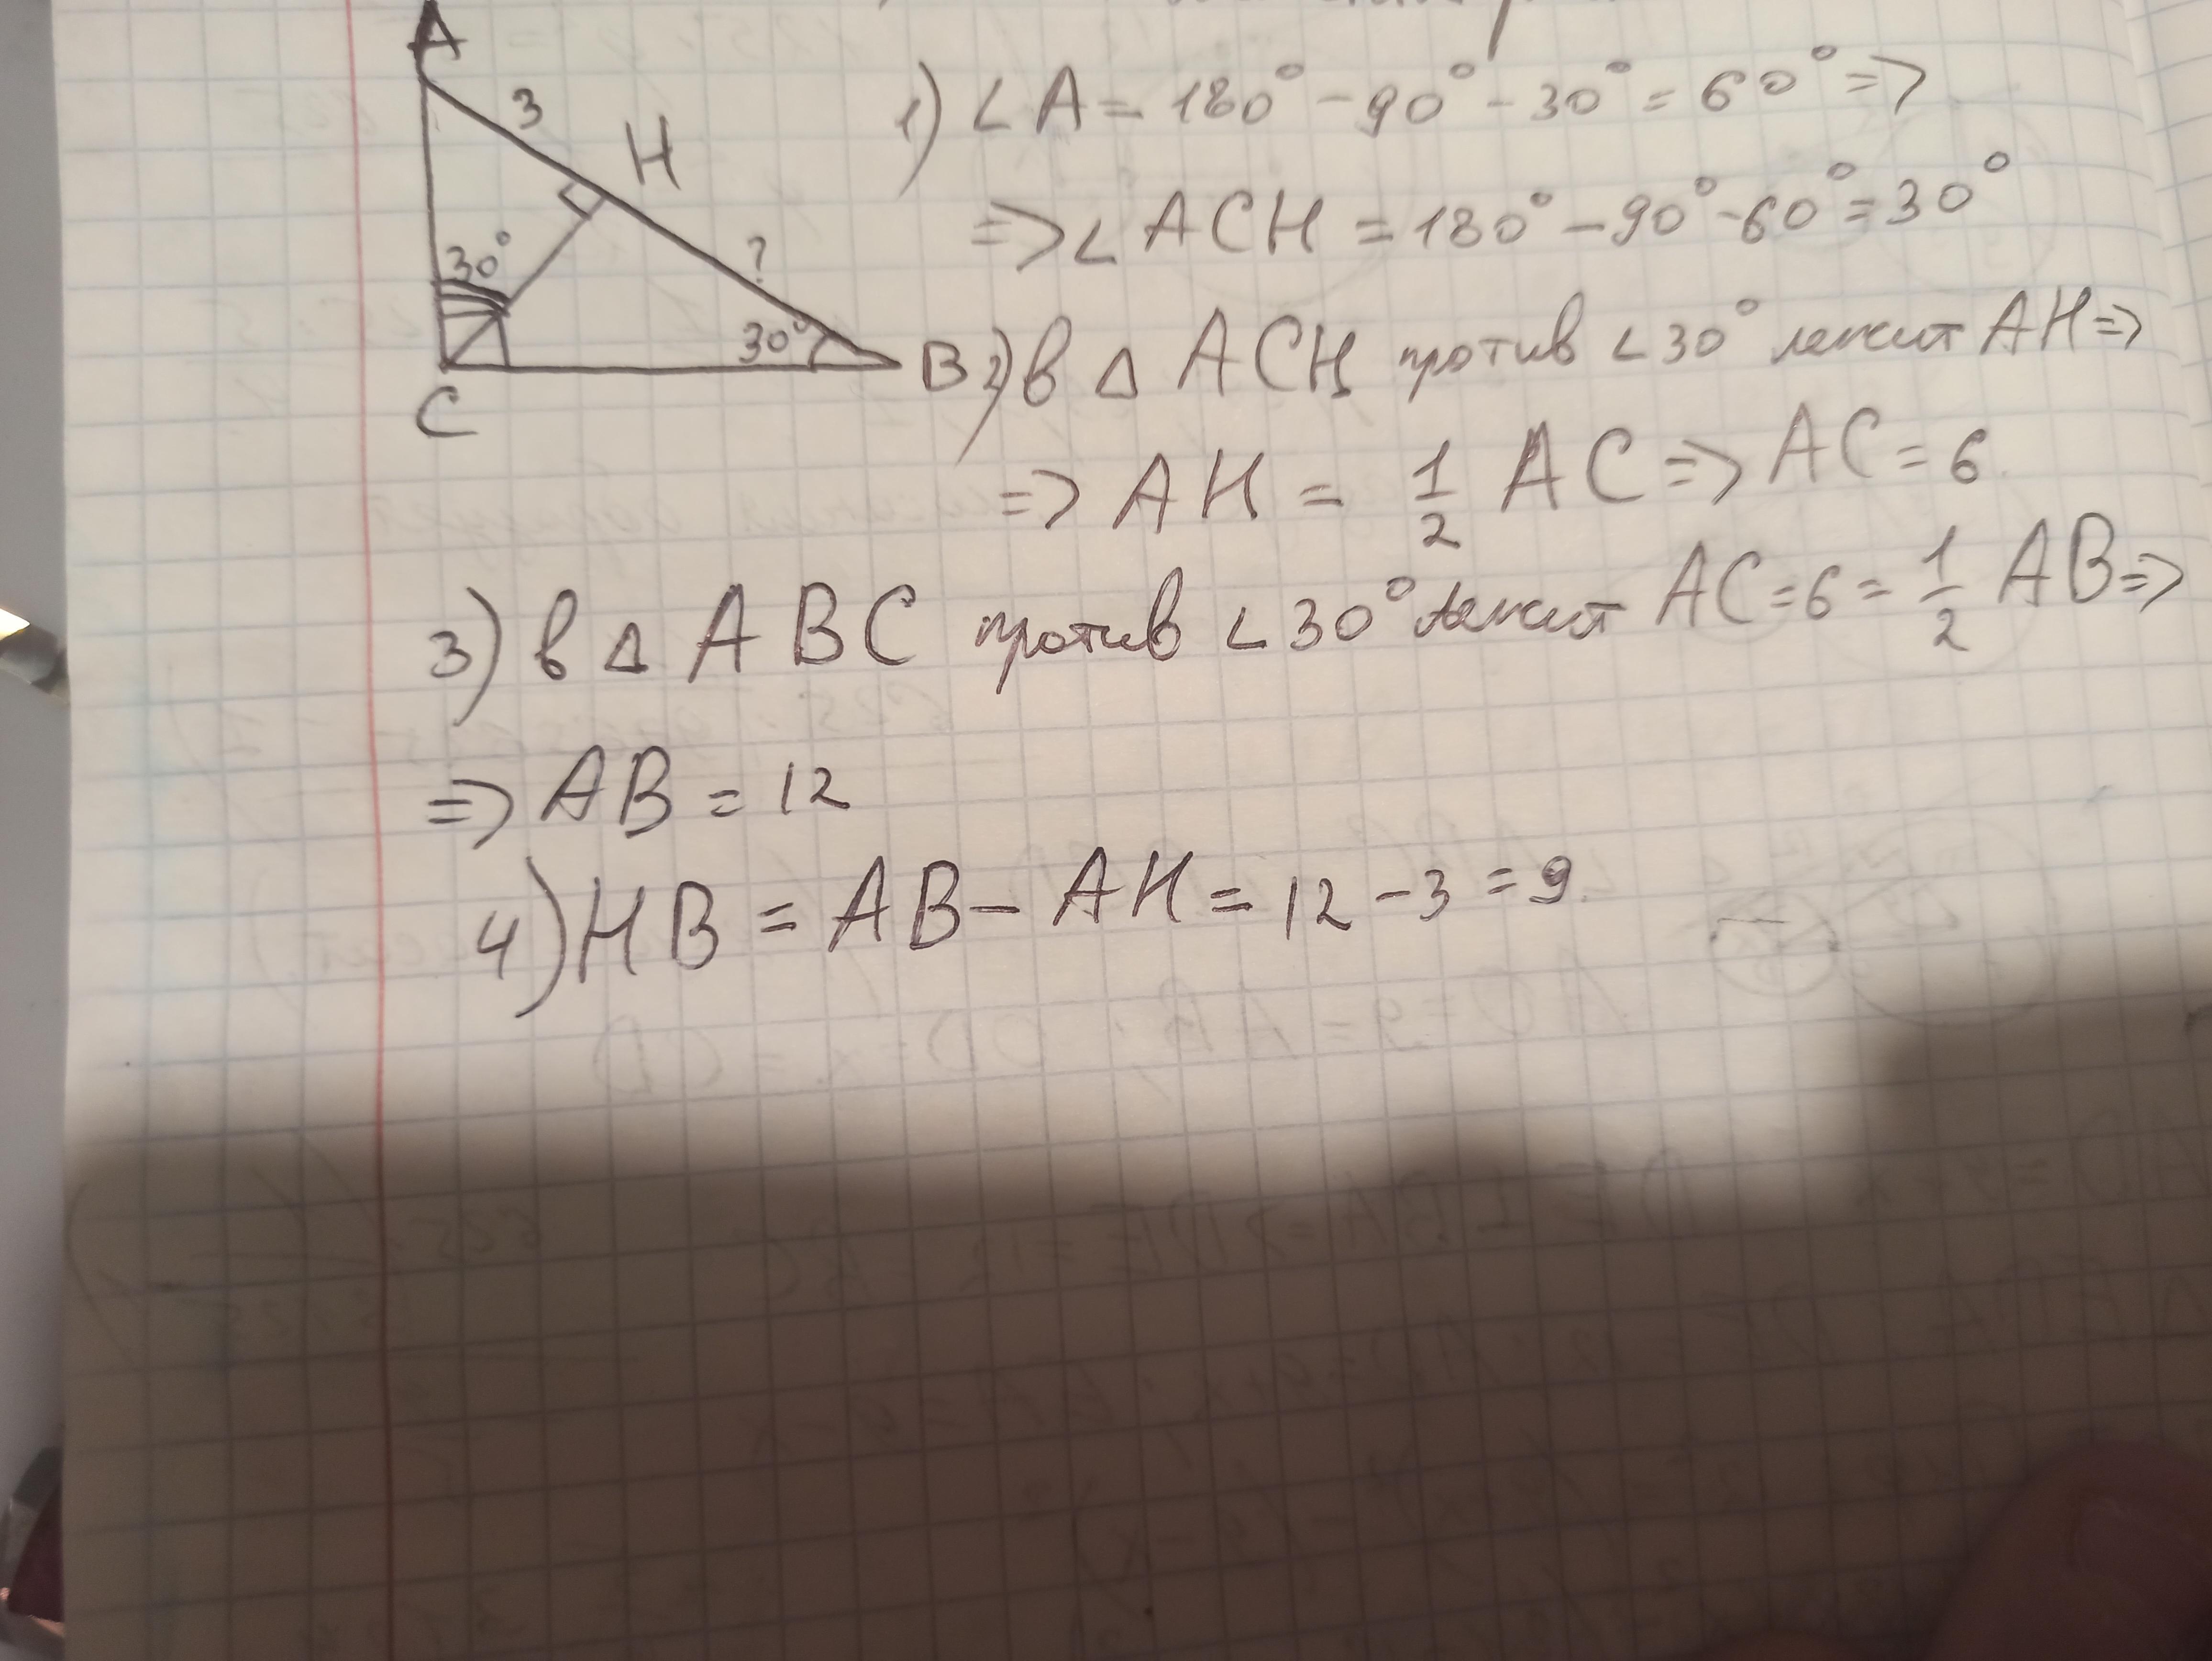 A
3
H
30°
?
30°
B
C
1) ∠A = 180° - 90° - 30° = 60° =>
=> ∠ACH = 180° - 90° - 60° = 30°
2) в △ ACH против ∠30° лежит AH =>
=> AH = 1/2 AC => AC = 6
3) в △ ABC против ∠30° лежит AC = 6 = 1/2 AB =>
=> AB = 12
4) HB = AB - AH = 12 - 3 = 9.